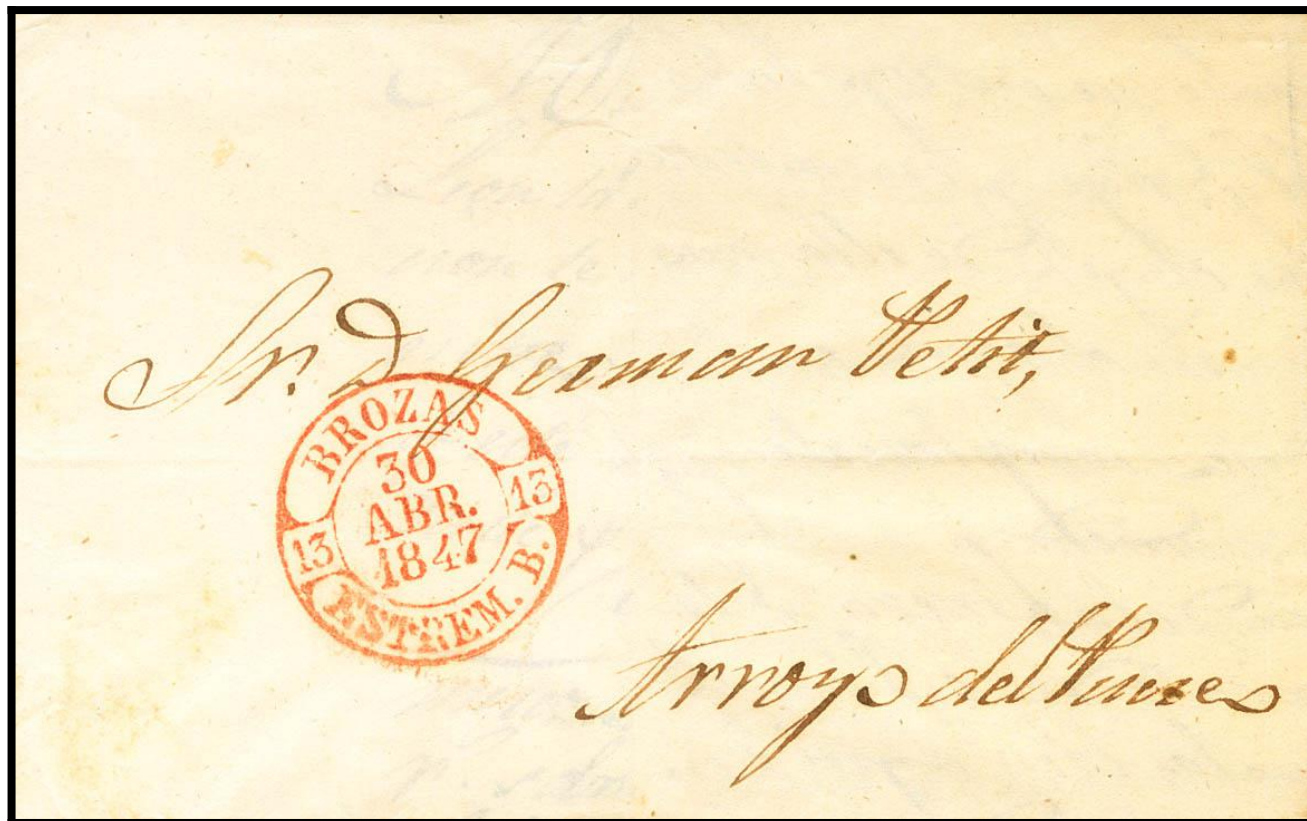 Sr. D German Petit,
BROZAS
30
ABR.
1847
13
13
ESTREM. B.
Arroyo del Puerco